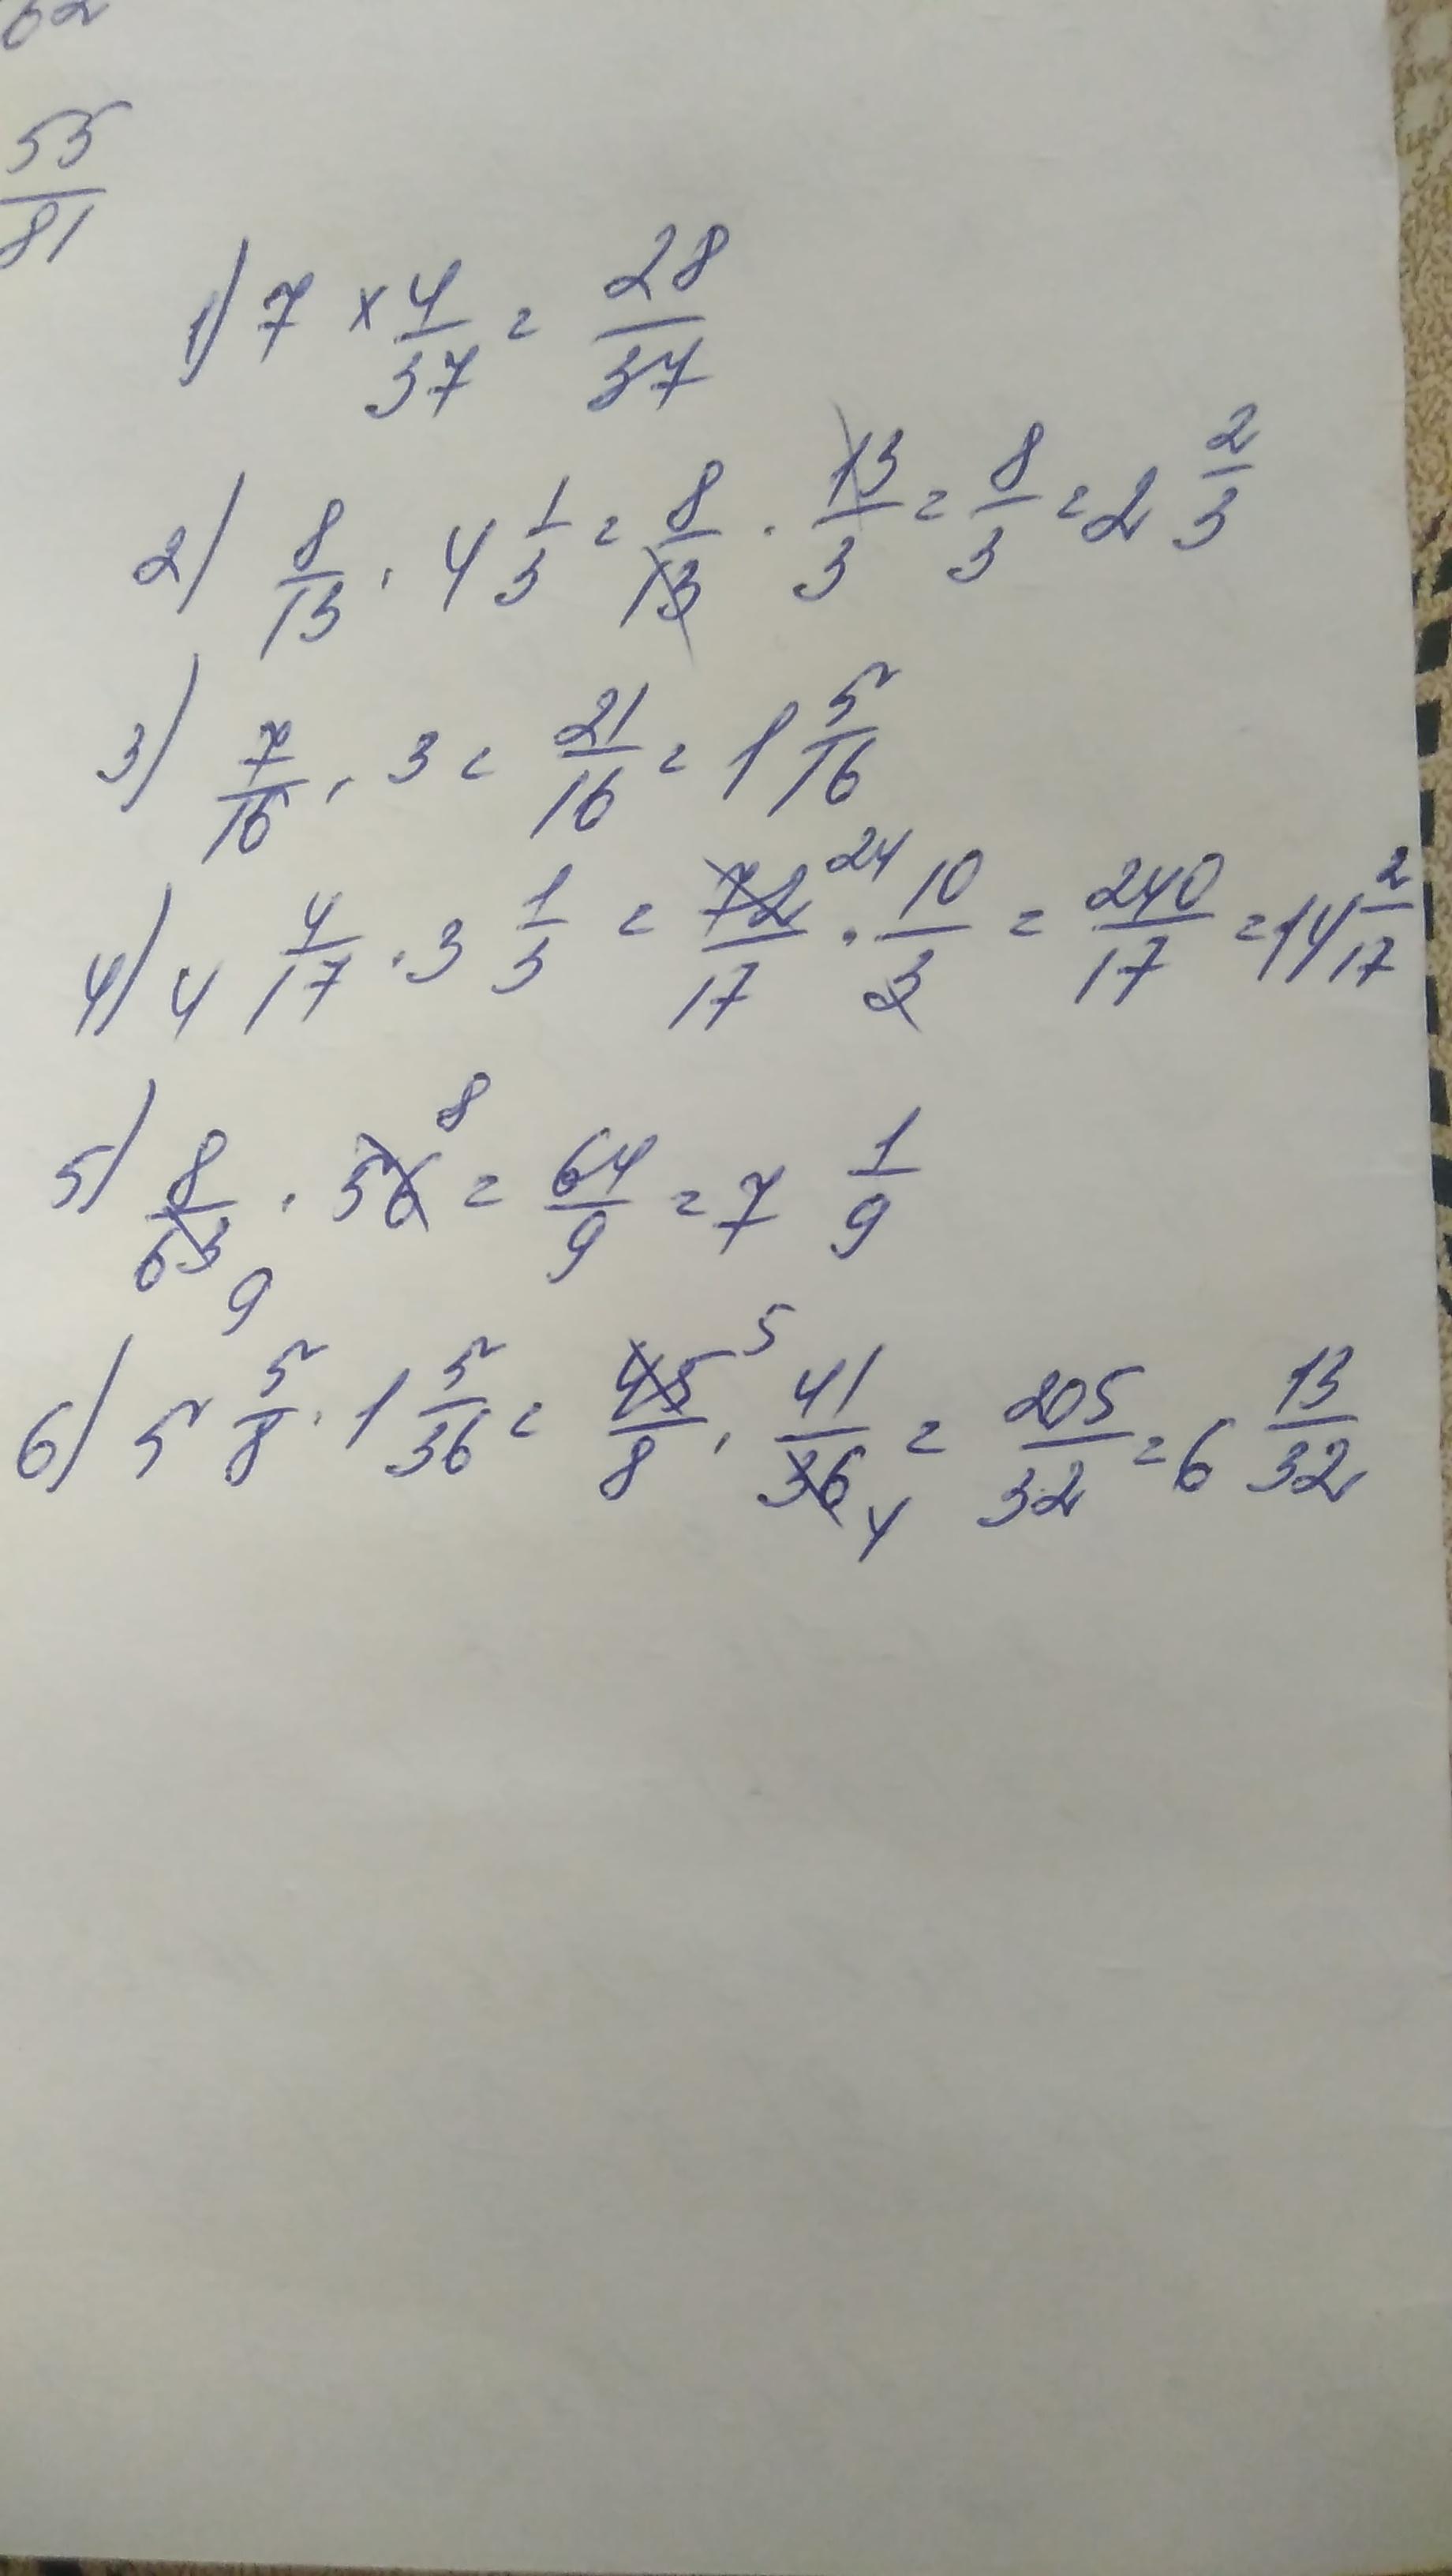 62
55/81
1) 7 × 4/37 = 28/37
2) 8/13 · 4 1/3 = 8/13 · 13/3 = 8/3 = 2 2/3
3) 7/16 · 3 = 21/16 = 1 5/16
4) 4 4/17 · 3 1/3 = 72/17 24 · 10/3 = 240/17 = 14 2/17
5) 8/63 9 · 56 8 = 64/9 = 7 1/9
6) 5 5/8 · 1 5/36 = 45/8 5 · 41/36 4 = 205/32 = 6 13/32